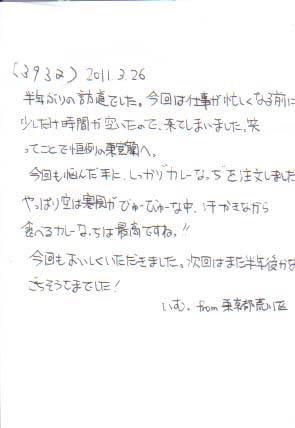 (3932) 2011.3.26
半年ぶりの訪直でした。今回は仕事が忙しくなる前に
少しだけ時間が空いたので、来てしまいました。笑
ってことで恒例の東室蘭へ。
今回も悩んだ手に、しっかり"カレーなっち"を注文しました
やっぱり空は寒風がびゅーびゅーな中、汗かきながら
食べるカレーなっちは最高ですねっ!!
今回もおいしくいただきました。次回はまた半年後かな
ごちそうさまでした!
いむ. from 東京都荒川区